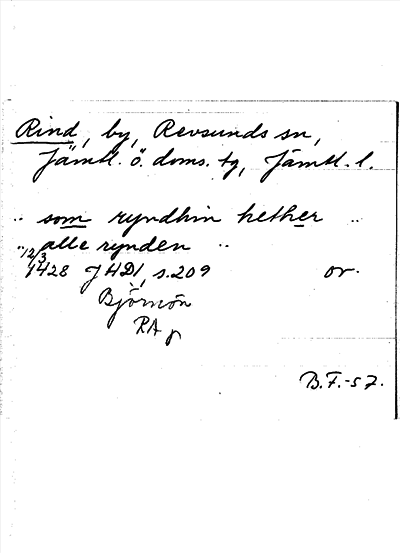 Rind, by, Revsunds sn,
Jämtl. ö. doms. tg, Jämtl. l.
.. som ryndhin hether ..
.. alle rynden ..
12/3 1428 JHD1, s. 209 or.
Björnön
RA p
B.F.-57.